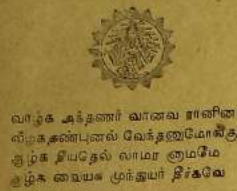 வாழ்க அந்தணர் வானவ ரானின
வீழ்கதண்புனல் வேந்தனுமோங்கு
ஆழ்க தீயதெல் லாமர னாமமே
சூழ்க வையக முந்துயர் தீர்கவே